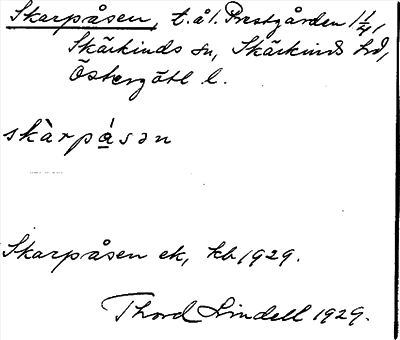 Skarpåsen, t. å l. Prestgården 1 1/4,
Skärkinds sn, Skärkinds hd,
Östergötl l.
skàrpá̱sən
Skarpåsen ek, kb 1929.
Thord Lindell 1929.